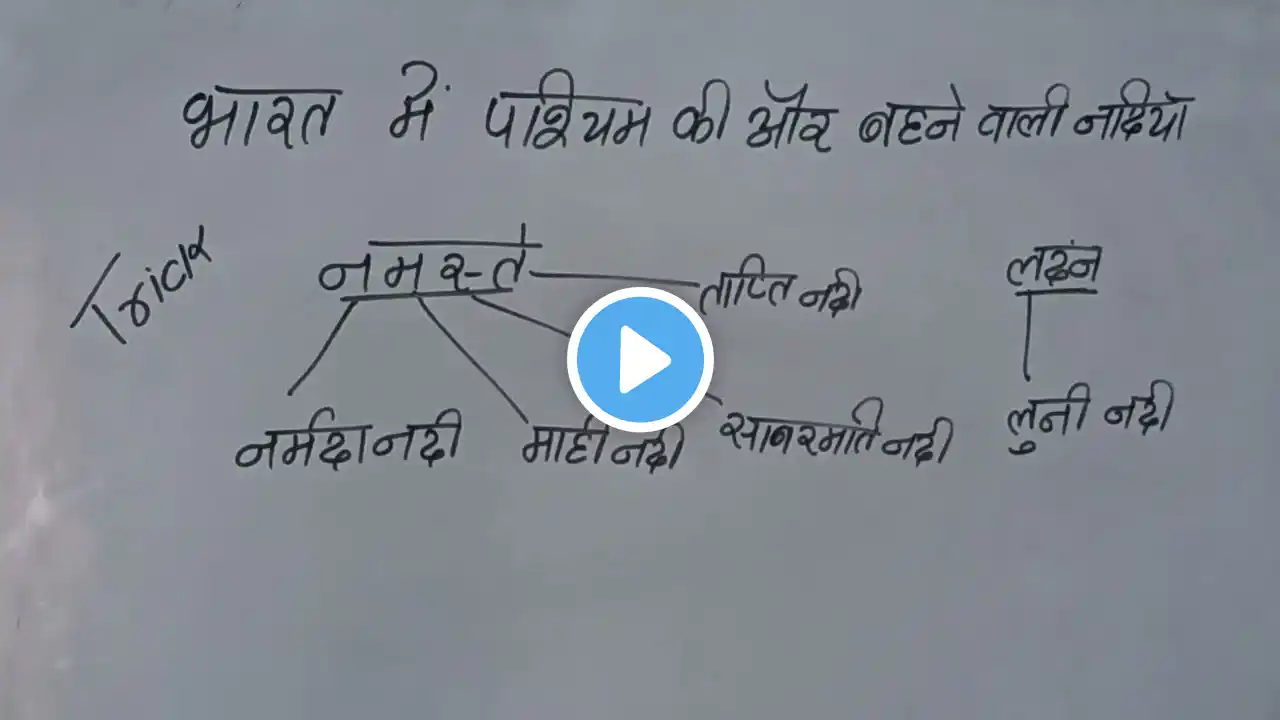 भारत में पश्चियम की और बहने वाली नदियाँ
Trick
नमस्ते
लदंन
ताप्ति नदी
नर्मदा नदी
माही नदी
साबरमति नदी
लुनी नदी